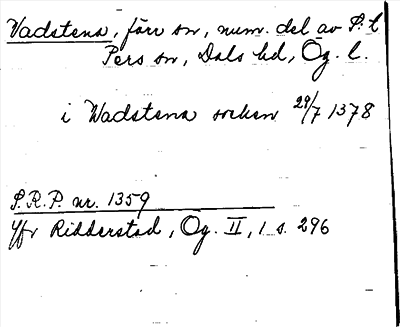 Vadstena, förr sn, num. del av S:t
Pers sn, Dals hd, Ög. l.
i Wadstena soken 29/7 1378
S.R.P. nr. 1359
Jfr Ridderstad, Ög. II, 1 s. 296